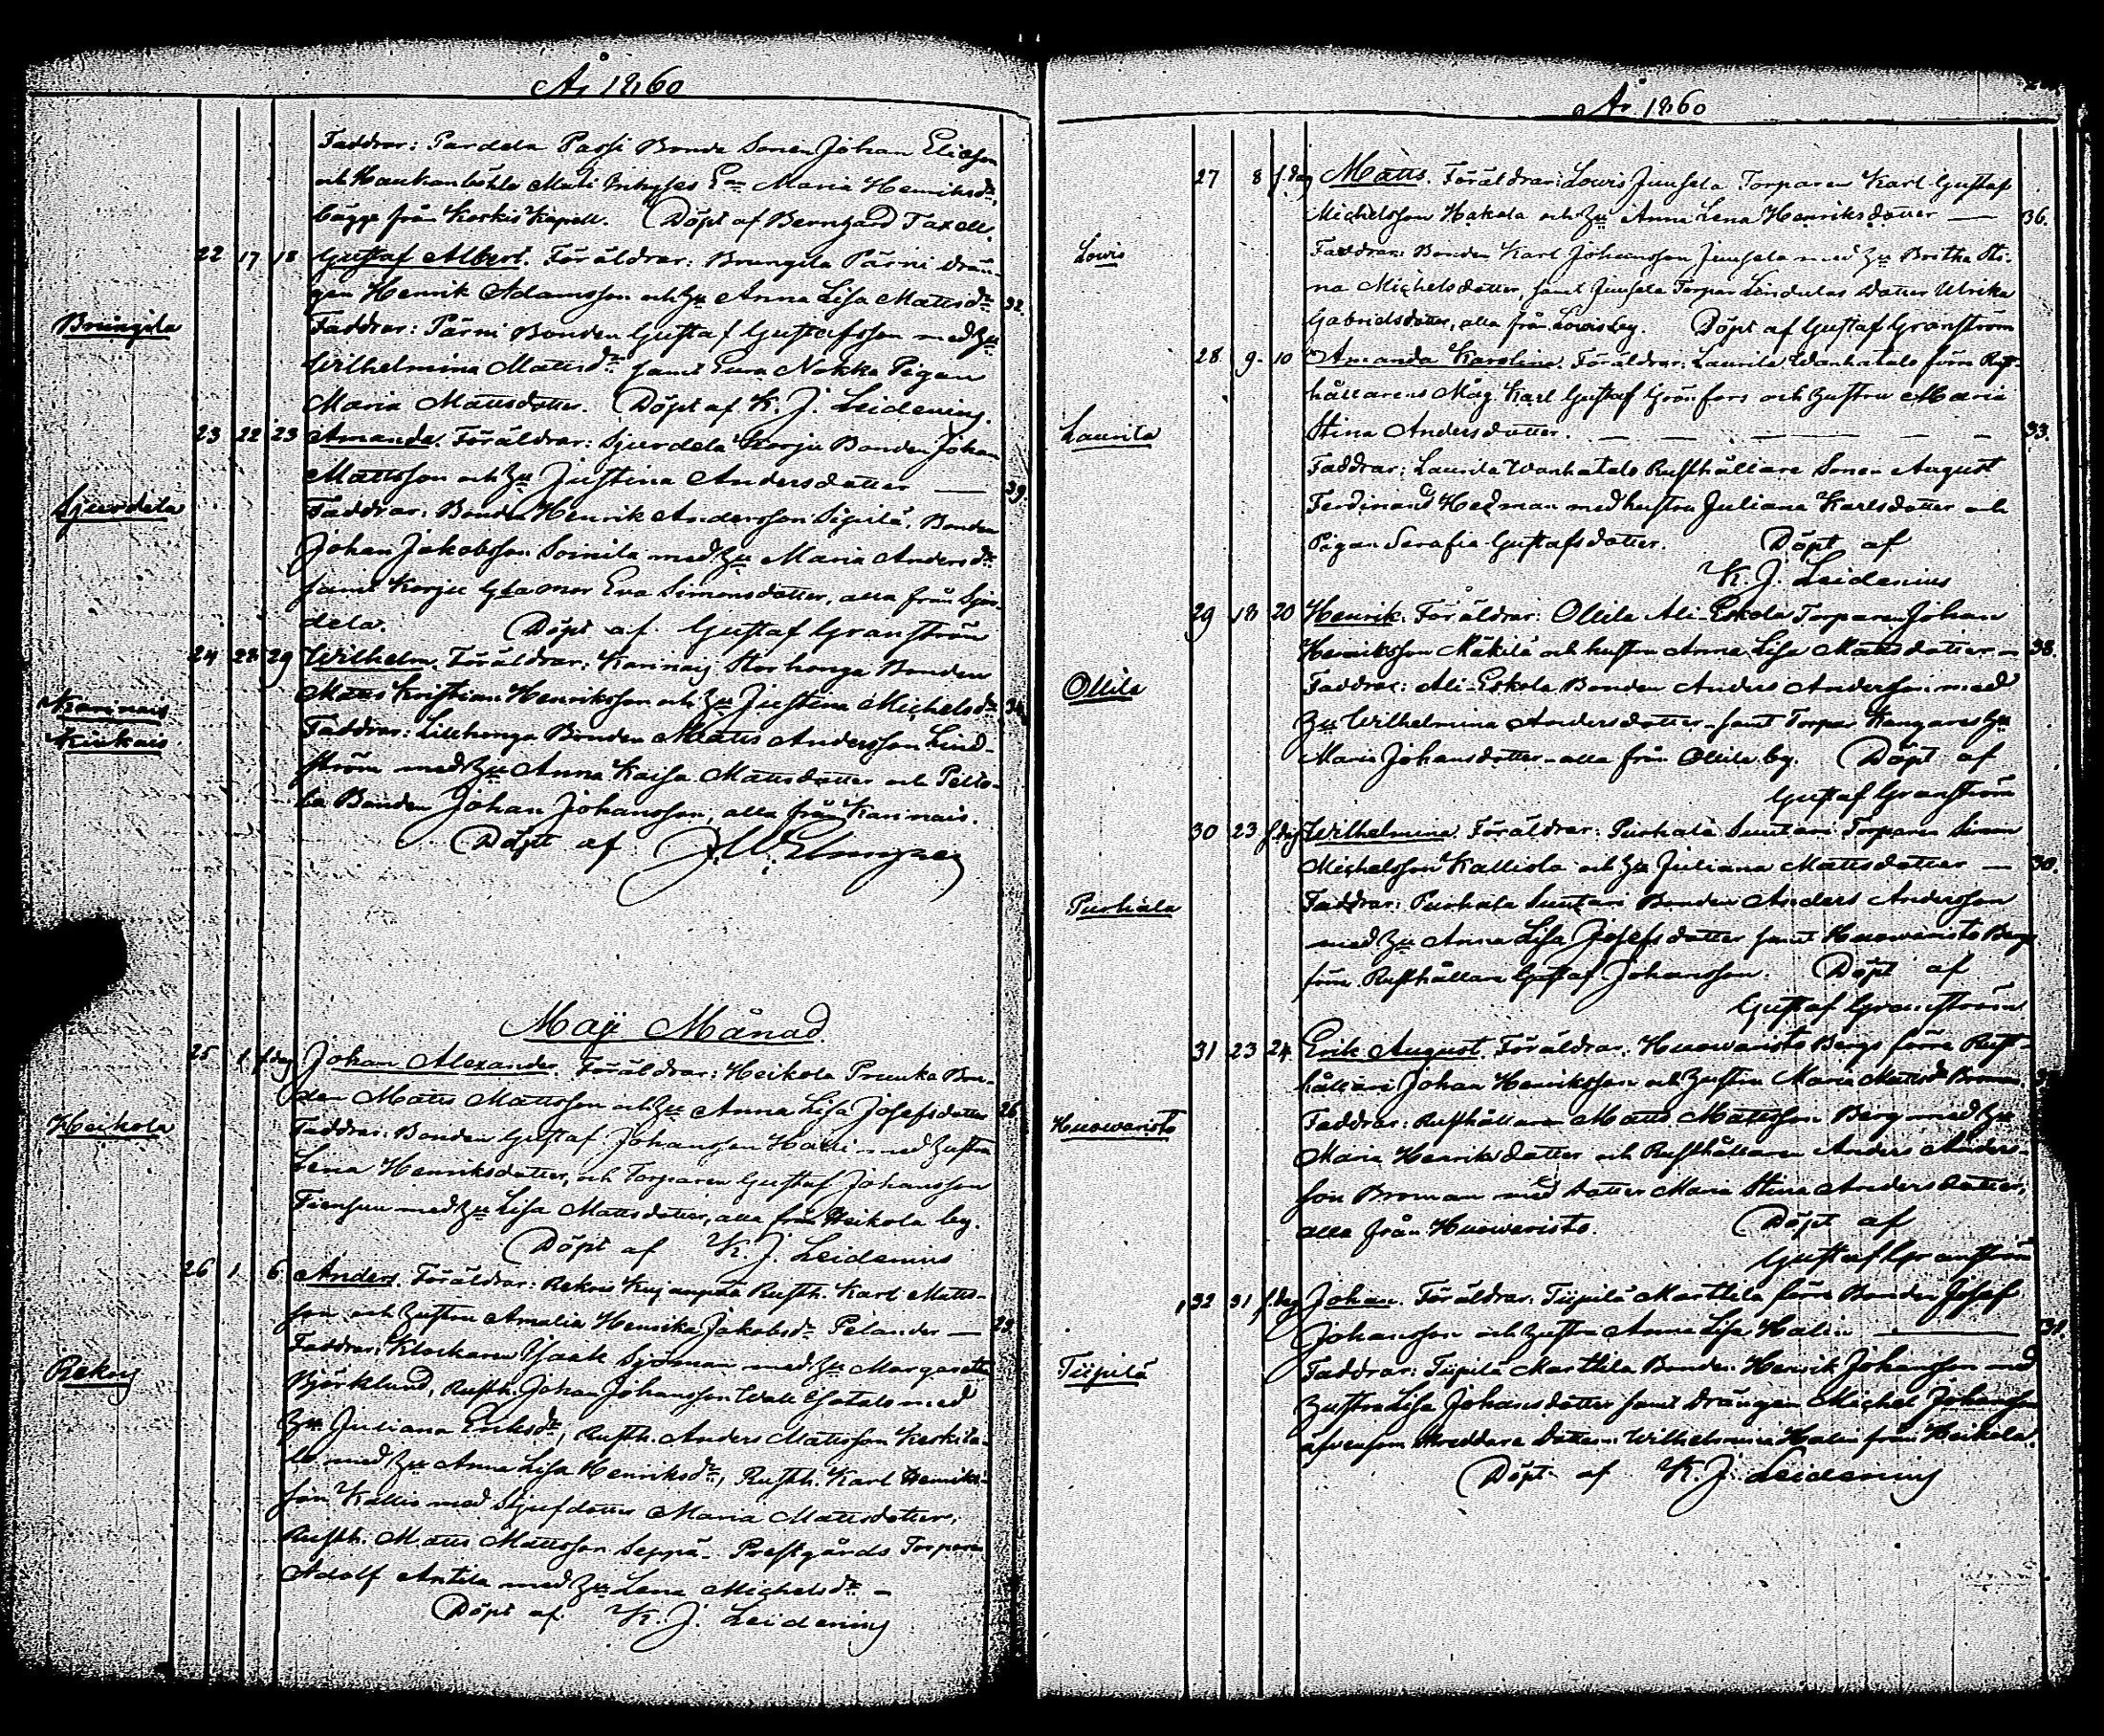 År 1860
Faddrar: Pardela Passi Bonde Sonen Johan Elieson
och Haukanböhle Mati Enhyses Maria Henriksdr,
bägge från Koskis Kapell. Döpt af Berngard Taxell.
22 17 18 Gustaf Albert. Föräldrar: Brungila Pärni Drän-
gen Henrik Adamsson och Hu Anna Lisa Mattsdr 32.
Brungila
Faddrar: Pärni Bonden Gustaf Gustafsson med Hu
Wilhelmina Mattsdr samt Eura Nokka Pigan
Maria Mattsdotter. Döpt af K. J. Leidenius.
23 22 23 Amanda. Föräldrar: Sjurdela Korju Bonden Johan
Mattsson och Hu Justina Andersdotter — 39.
Sjurdela
Faddrar: Bonden Henrik Andersson Sipilä, Bonden
Johan Jakobsson Soinila med Hu Maria Andersdr
samt Korju Gla mor Eva Simonsdotter, alla från Sjur-
dela. Döpt af Gustaf Granström
24 28 29 Wilhelm. Föräldrar: Karinais Storhonga Bonden
Matts Kristian Henriksson och Hu Justina Michelsdr 34.
Karinais
Kiukais
Faddrar: Lillhonga Bonden Matts Andersson Lind-
ström med Hu Anna Kaisa Mattsdotter och Pelto-
la Bonden Johan Johansson, alla från Karinais.
Döpt af
Maji Månad.
25 1 f.dag Johan Alexander. Föräldrar: Heikola Prunka Bon-
den Matts Mattsson och Hu Anna Lisa Josefsdotter 26
Heikola
Faddrar: Bonden Gustaf Johansson Halli med Hustru
Lena Henriksdotter, och Torparen Gustaf Johansson
med Hu Lisa Mattsdotter, alla från Heikola by.
Döpt af K. J. Leidenius
26 1. 6 Anders. Föräldrar: Rekois Kujanpää Rusth. Karl Matts-
son och Hustru Amalia Henrika Jakobsdr Pelander — 23.
Rekois
Faddrar: Klockaren Isaak Sjöman med Hu Margaretta
Björklund, Rusth. Johan Johansson Wali Esatalo med
Hu Juliana Eriksdr, Rusth. Anders Mattsson Keskita-
lo med Hu Anna Lisa Henriksdr, Rusth. Karl Henriks-
son Kallio med Stjufdotter Maria Mattsdotter,
Rusth. Matts Mattsson Seppä. Prestgårds Torparen
Adolf Antila med Hu Lena Michelsdr —
Döpt af K. J. Leidenius
År 1860
27 8 f.dag Matts. Föräldrar: Lowis Junsela Torparen Karl Gustaf
Michelsson Hakala och Hu Anna Lena Henriksdotter — 36.
Lowis
Faddrar: Bonden Karl Johansson Junsela med Hu Britha Sti-
na Michelsdotter, samt Junsela Torpar Lindulas Dotter Ulrika
Gabrielsdotter, alla från Lowis by. Döpt af Gustaf Granström
28 9. 10 Amanda Karolina. Föräldrar: Laurila Wanhatalo förre Rust-
hållarens Måg Karl Gustaf Grönfors och Hustru Maria
Laurila
Stina Andersdotter. — — — — — 33.
Faddrar: Laurila Wanhatalo Rusthållare Sonen August
Ferdinand Hedman med hustru Juliana Karlsdotter och
Pigan Serafia Gustafsdotter. Döpt af
K. J. Leidenius
29 18 20 Henrik. Föräldrar: Ollila Ali-Eskola Torparen Johan
Henriksson Mäkilä och hustru Anna Lisa Mattsdotter — 38.
Ollila
Faddrar: Ali-Eskola Bonden Anders Andersson med
Hu Wilhelmina Andersdotter samt Torpar Kangares Hu
Maria Johansdotter alla från Ollila by. Döpt af
Gustaf Granström
30 23 f.dag Wilhelmina. Föräldrar: Purhala Suutari Torparen Simon
Michelsson Kalliola och Hu Juliana Mattsdotter — 30.
Purhala
Faddrar: Purhala Suutari Bonden Anders Andersson
med Hu Anna Lisa Josefsdotter samt Huowaristo Bergs
förre Rusthållare Gustaf Johansson. Döpt af
Gustaf Granström
31 23 24 Erik August. Föräldrar: Huowaristo Bergs förre Rust-
hållare Johan Henriksson och Hustru Maria Mattsdr Broman.
Huowaristo
Faddrar: Rusthållaren Matts Mattsson Berg med Hu
Maria Henriksdotter och Rusthållaren Anders Anders-
son Broman med Dotter Maria Stina Andersdotter,
alla från Huowaristo. Döpt af
Gustaf Granström
32 31 f.dag Johan. Föräldrar: Tiipilä Marttila förre Bonden Josef
Johansson och Hustru Anna Lisa Halin — 31.
Tiipilä
Faddrar: Tiipilä Marttila Bonden Henrik Johansson med
Hustru Lisa Johansdotter samt Drängen Michel Johansson
äfvensom Skreddare Dottern Wilhelmina Halin från Heikola.
Döpt af K. J. Leidenius